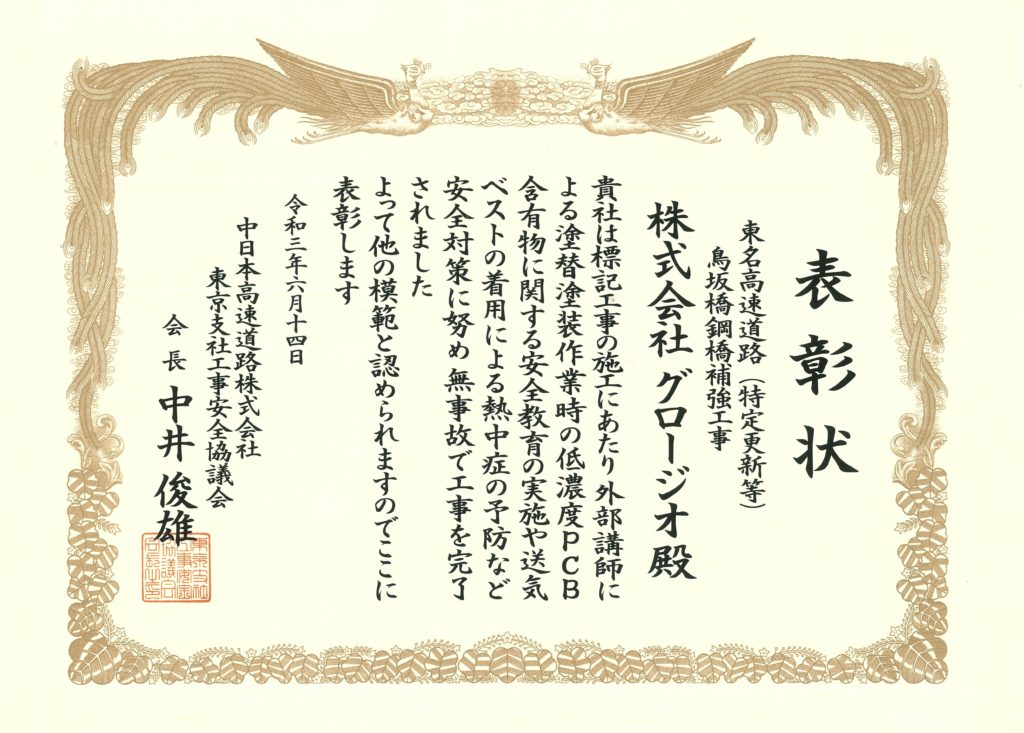 表彰状
東名高速道路（特定更新等）
鳥坂橋鋼橋補強工事
株式会社 グロージオ殿
貴社は標記工事の施工にあたり 外部講師に
よる塗替塗装作業時の低濃度ＰＣＢ
含有物に関する安全教育の実施や送気
ベストの着用による熱中症の予防など
安全対策に努め 無事故で工事を完了
されました
よって他の模範と認められますのでここに
表彰します
令和三年六月十四日
中日本高速道路株式会社
東京支社工事安全協議会
会長 中井 俊雄
東京支社
工事安全
協議会
会長之印